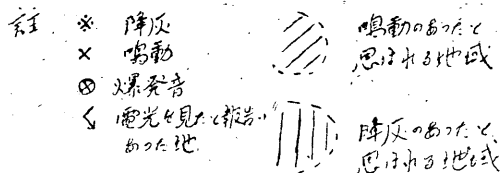 註 ※ 降灰
× 鳴動
⊗ 爆発音
く 電光を見たと報告の
あった地
鳴動のあったと
思はれる地域
降灰のあったと
思はれる地域